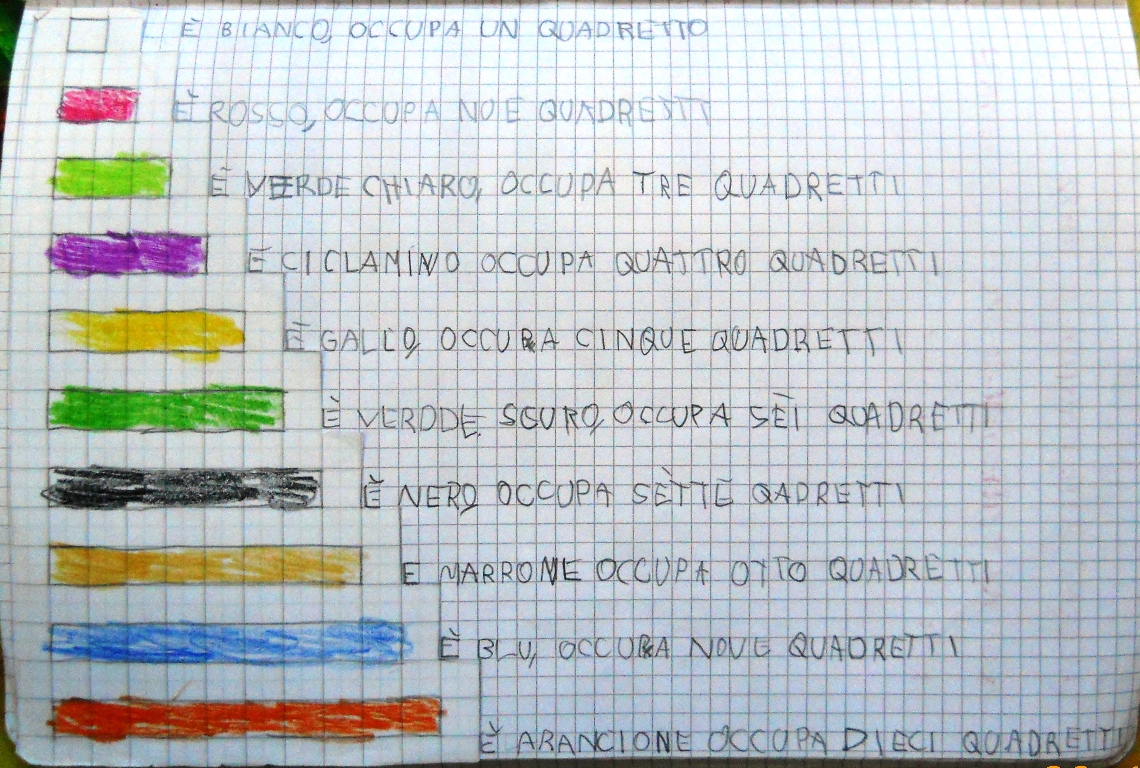 È BIANCO, OCCUPA UN QUADRETTO
È ROSSO, OCCUPA NUE QUADRETTI
È VERDE CHIARO, OCCUPA TRE QUADRETTI
È CICLAMINO OCCUPA QUATTRO QUADRETTI
È GALLO, OCCUPA CINQUE QUADRETTI
È VERDDE SCURO, OCCUPA SÈI QUADRETTI
È NERO, OCCUPA SÈTTE QADRETTI
E MARRONE OCCUPA OTTO QUADRETTI
È BLU, OCCUPA NOVE QUADRETTI
È ARANCIONE OCCUPA DIECI QUADRETTI